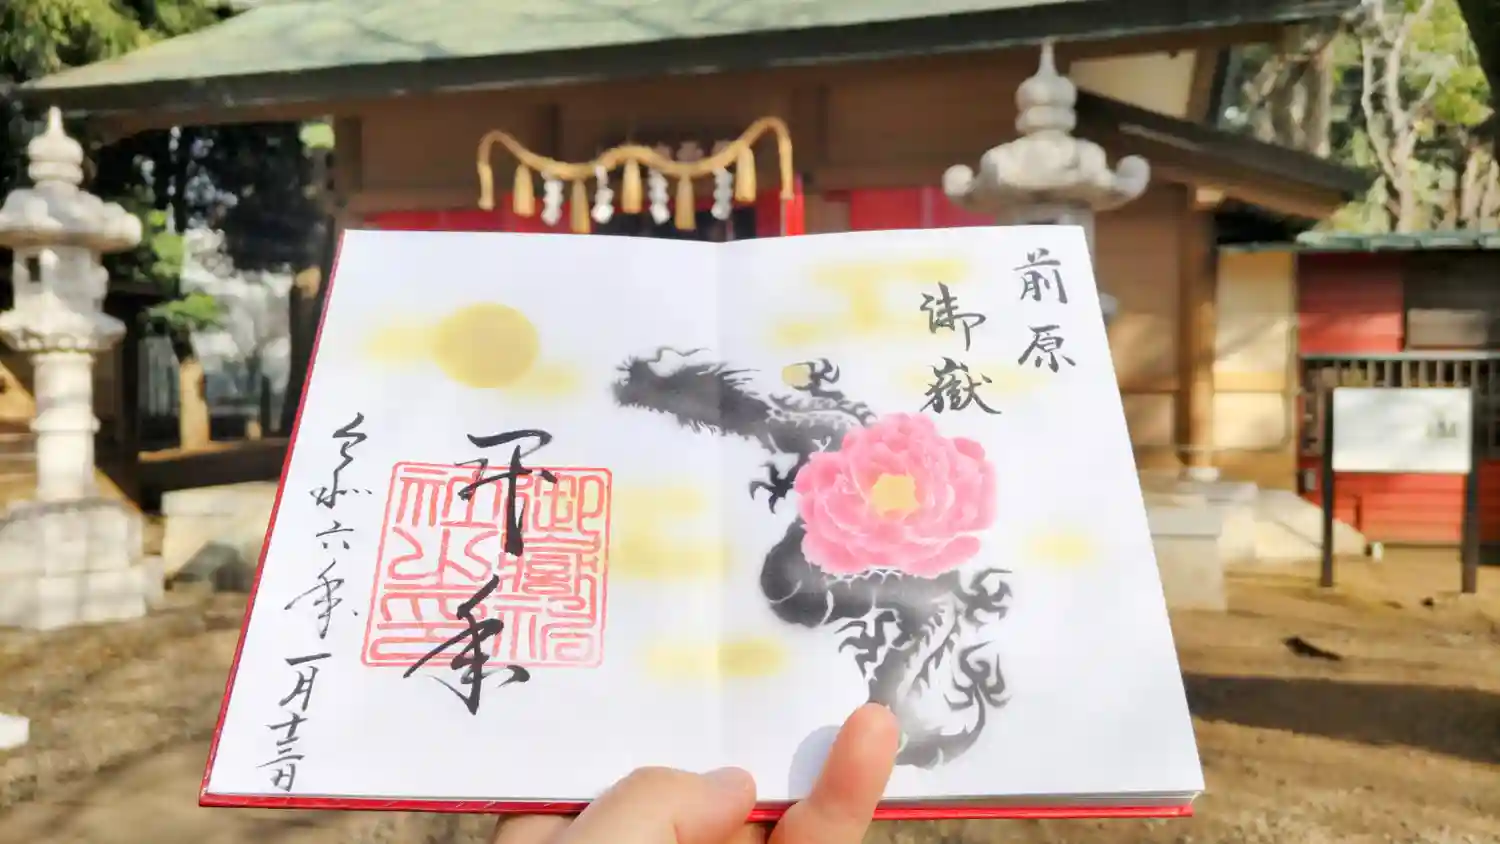 前原
御嶽
年
御嶽神
社之印
令和六年一月十三日